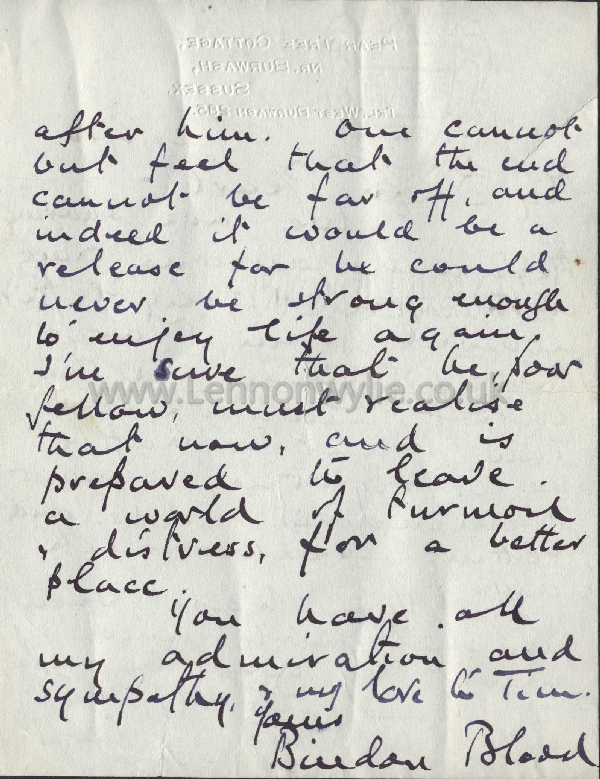 PEAR TREE COTTAGE,
NR. BURWASH,
SUSSEX.
TEL. WEST BURWASH 285.
after him. One cannot
but feel that the end
cannot be far off, and
indeed it would be a
release for he could
never be strong enough
to enjoy life again
I'm sure that he, poor
fellow, must realise
that now, and is
prepared to leave
a world of turmoil
& distress, for a better
place.
You have all
my admiration and
sympathy, & my love to Tim.
Yours
Bindon Blood
www.Lennonwylie.co.uk